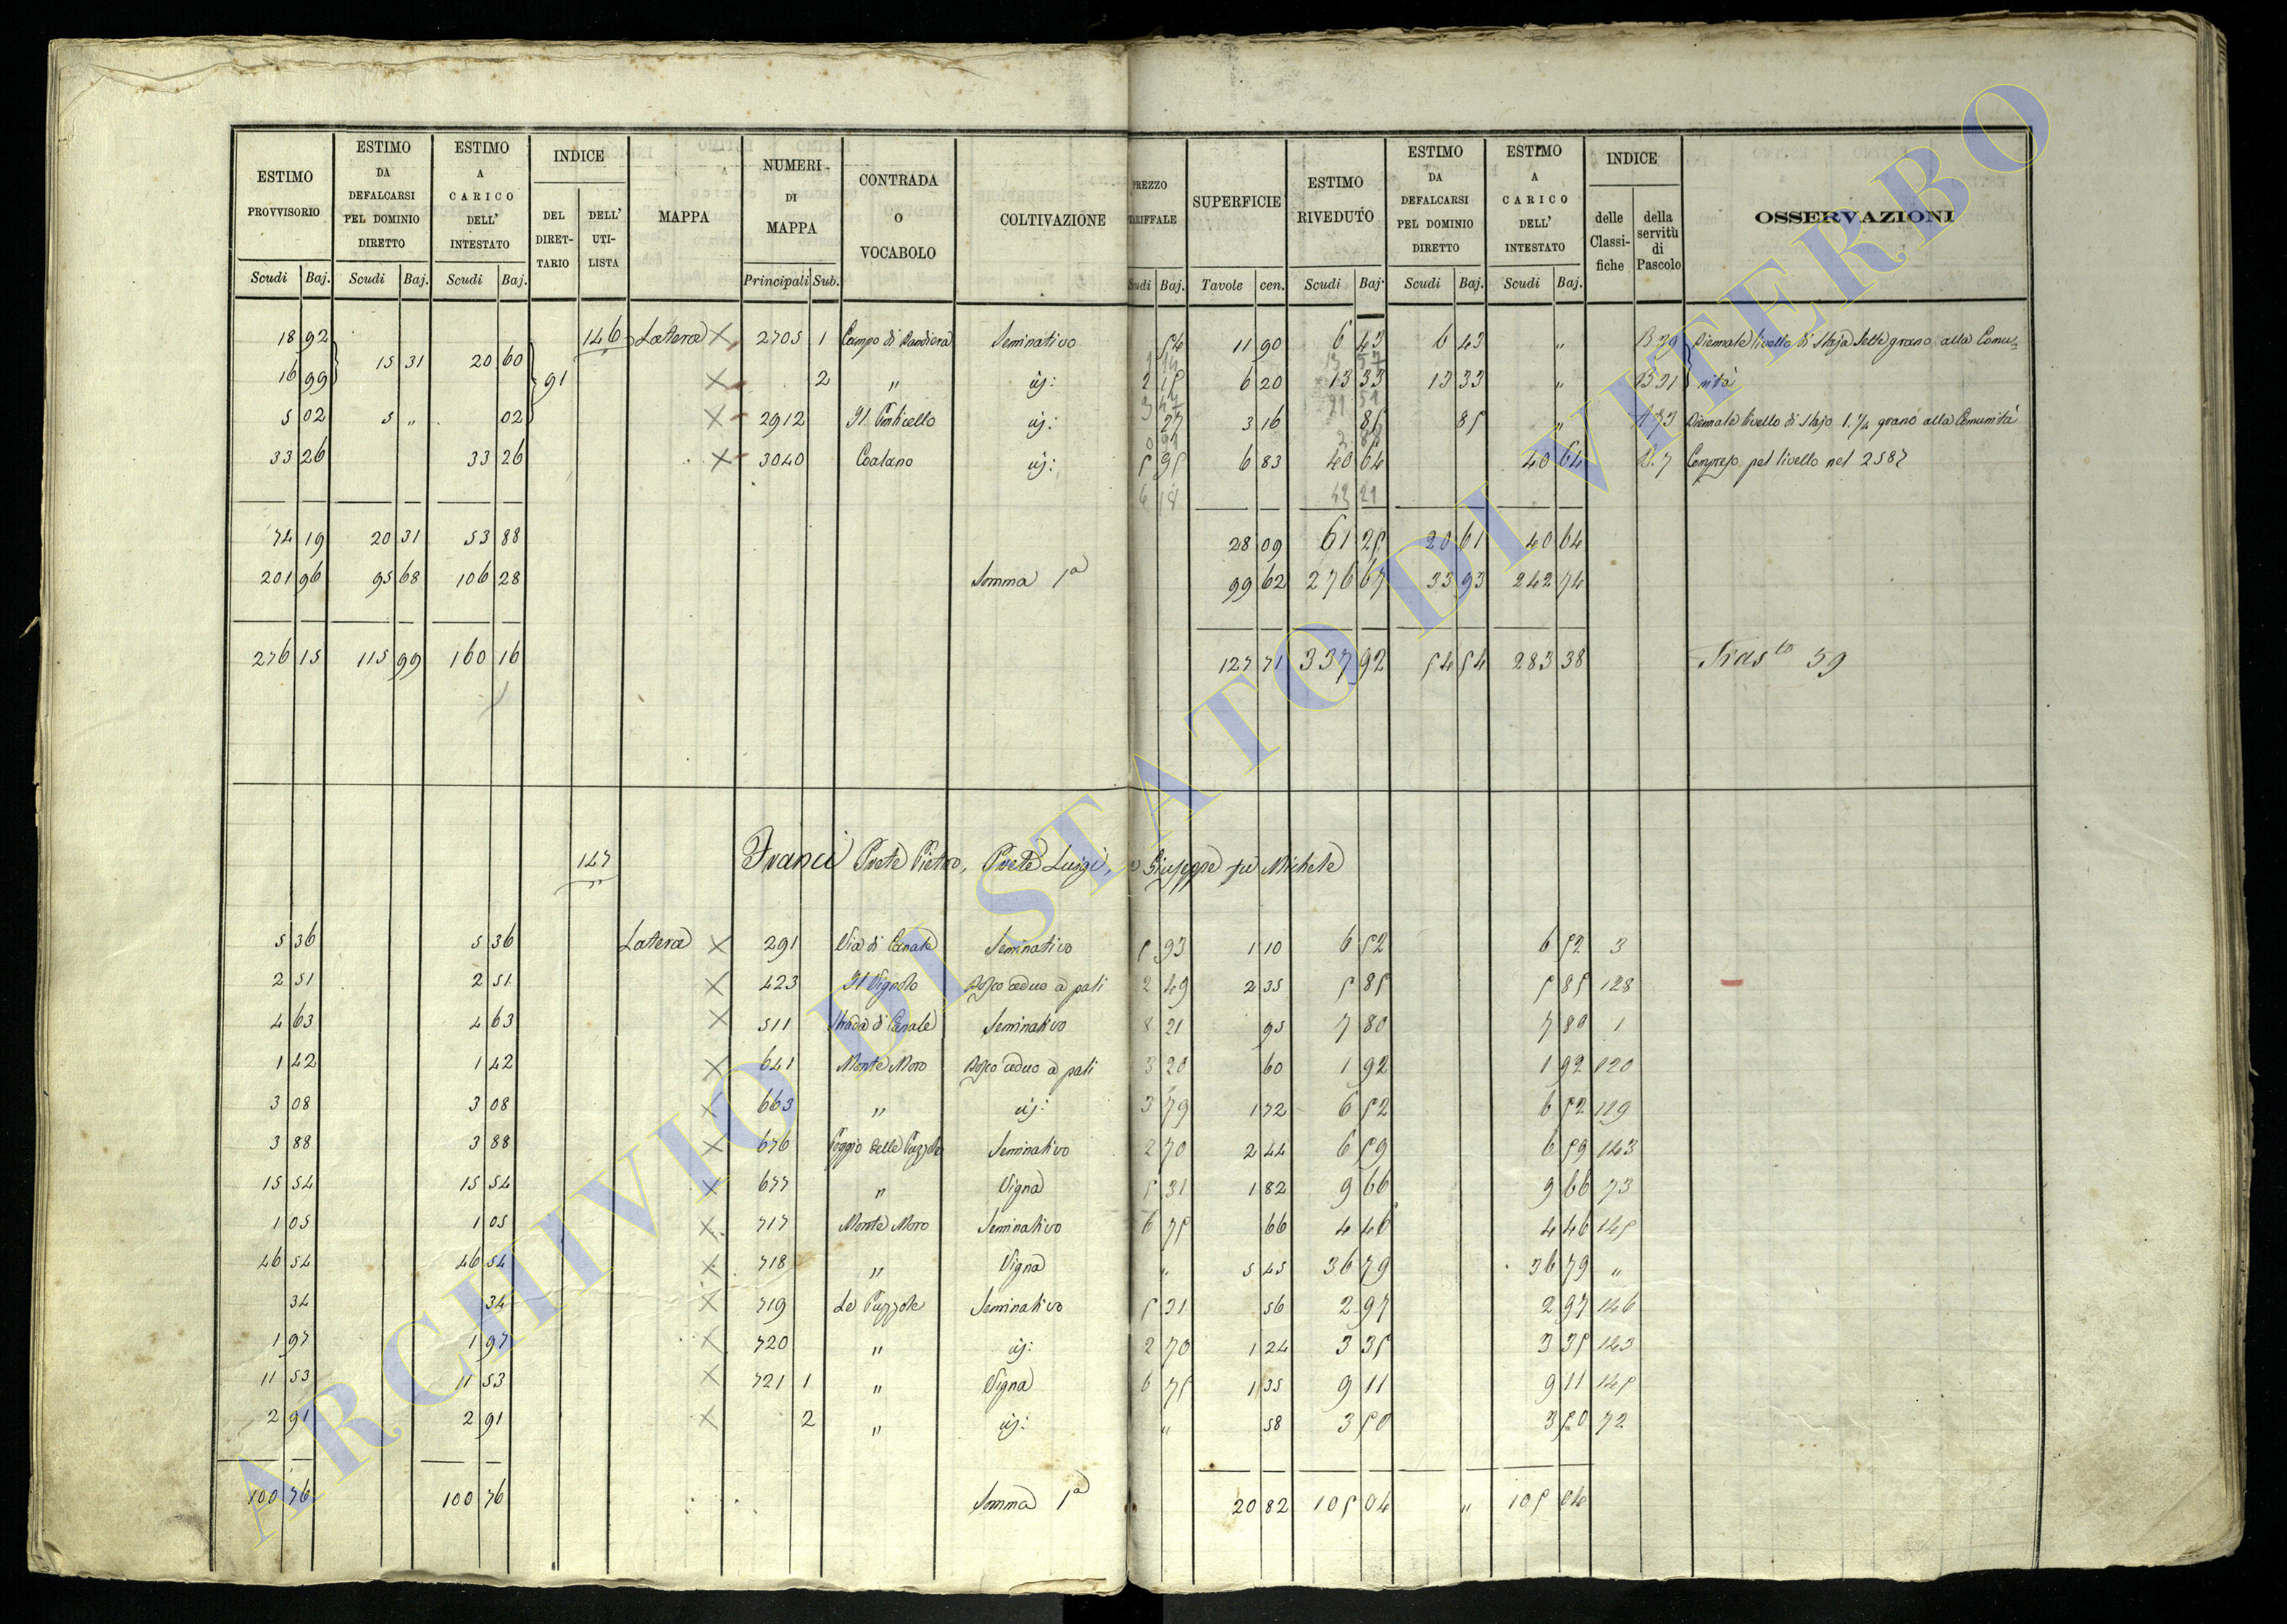 ESTIMO PROVVISORIO | ESTIMO DA DEFALCARSI PEL DOMINIO DIRETTO | ESTIMO A CARICO DELL' INTESTATO | INDICE | MAPPA | NUMERI DI MAPPA | CONTRADA O VOCABOLO | COLTIVAZIONE | PREZZO TARIFFALE | SUPERFICIE | ESTIMO RIVEDUTO | ESTIMO DA DEFALCARSI PEL DOMINIO DIRETTO | ESTIMO A CARICO DELL' INTESTATO | INDICE | OSSERVAZIONI
DEL DIRETTARIO | DELL' UTILISTA | delle Classifiche | della servitù di Pascolo
Scudi | Baj. | Scudi | Baj. | Scudi | Baj. | Principali | Sub. | Scudi | Baj. | Tavole | cen. | Scudi | Baj. | Scudi | Baj. | Scudi | Baj.
18 92 | 15 31 | 20 60 | 91 | 146 | Latera X | 2705 | 1 | Campo di Bandiera | Seminativo | 54 | 11 90 | 6 43 | 6 43 | " | Biennale livello di Staja Sette grano alla Comu=
16 99 | X | 2 | " | id: | 2 15 | 6 20 | 13 33 | 13 33 | " | nità
5 02 | 5 " | 02 | X | 2912 | Il Ponticello | id: | 27 | 3 16 | 85 | 85 | " | Biennale livello di Stajo 1. 1/4 grano alla Comunità
33 26 | 33 26 | X | 3040 | Coalano | id: | 5 95 | 6 83 | 40 64 | 40 64 | B. 7 | Compreso pel livello nel 2587
6 18 | 42 21
74 19 | 20 31 | 53 88 | 28 09 | 61 25 | 20 61 | 40 64
201 96 | 95 68 | 106 28 | Somma 1a | 99 62 | 276 67 | 33 93 | 242 74
276 15 | 115 99 | 160 16 | 127 71 | 337 92 | 54 54 | 283 38 | Trasto 39
147 | Franci Prete Pietro, Prete Luigi, e Giuseppe fu Michele
5 36 | 5 36 | Latera X | 291 | Via di Canale | Seminativo | 5 93 | 1 10 | 6 52 | 6 52 | 3
2 51 | 2 51 | X | 423 | Il Vignolo | Bosco ceduo a pali | 2 49 | 2 35 | 5 85 | 5 85 | 128
4 63 | 4 63 | X | 511 | Strada di Canale | Seminativo | 8 21 | 95 | 7 80 | 7 80 | 1
1 42 | 1 42 | X | 641 | Monte Moro | Bosco ceduo a pali | 3 20 | 60 | 1 92 | 1 92 | 120
3 08 | 3 08 | X | 663 | " | id: | 3 79 | 1 72 | 6 52 | 6 52 | 119
3 88 | 3 88 | X | 676 | Poggio delle Puzzole | Seminativo | 2 70 | 2 44 | 6 59 | 6 59 | 143
15 54 | 15 54 | X | 677 | " | Vigna | 5 31 | 1 82 | 9 66 | 9 66 | 73
1 05 | 1 05 | X | 717 | Monte Moro | Seminativo | 6 75 | 66 | 4 46 | 4 46 | 145
46 54 | 46 54 | X | 718 | " | Vigna | " | 5 45 | 36 79 | 36 79 | "
34 | 34 | X | 719 | Le Puzzole | Seminativo | 5 31 | 56 | 2 97 | 2 97 | 146
1 97 | 1 97 | X | 720 | " | id: | 2 70 | 1 24 | 3 35 | 3 35 | 143
11 53 | 11 53 | X | 721 | 1 | " | Vigna | 6 75 | 1 35 | 9 11 | 9 11 | 145
2 91 | 2 91 | X | 2 | " | id: | " | 58 | 3 50 | 3 50 | 72
100 76 | 100 76 | Somma 1a | 20 82 | 105 04 | " | 105 04
ARCHIVIO DI STATO DI VITERBO